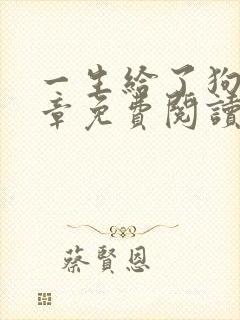 一生給了狗
章免費閱讀
蔡賢恩